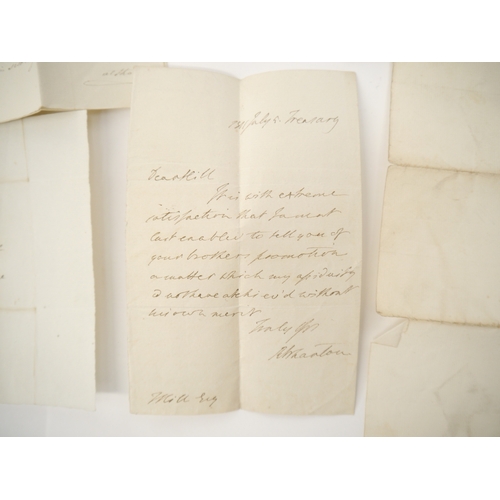 July 5 Treasury
Dear Hill
It is with extreme
satisfaction that I am at
last enabled to tell you of
your brothers promotion
a matter which my assiduity
would not have atchieved without
his own merit
Truly yrs
RWharton
Hill Esq